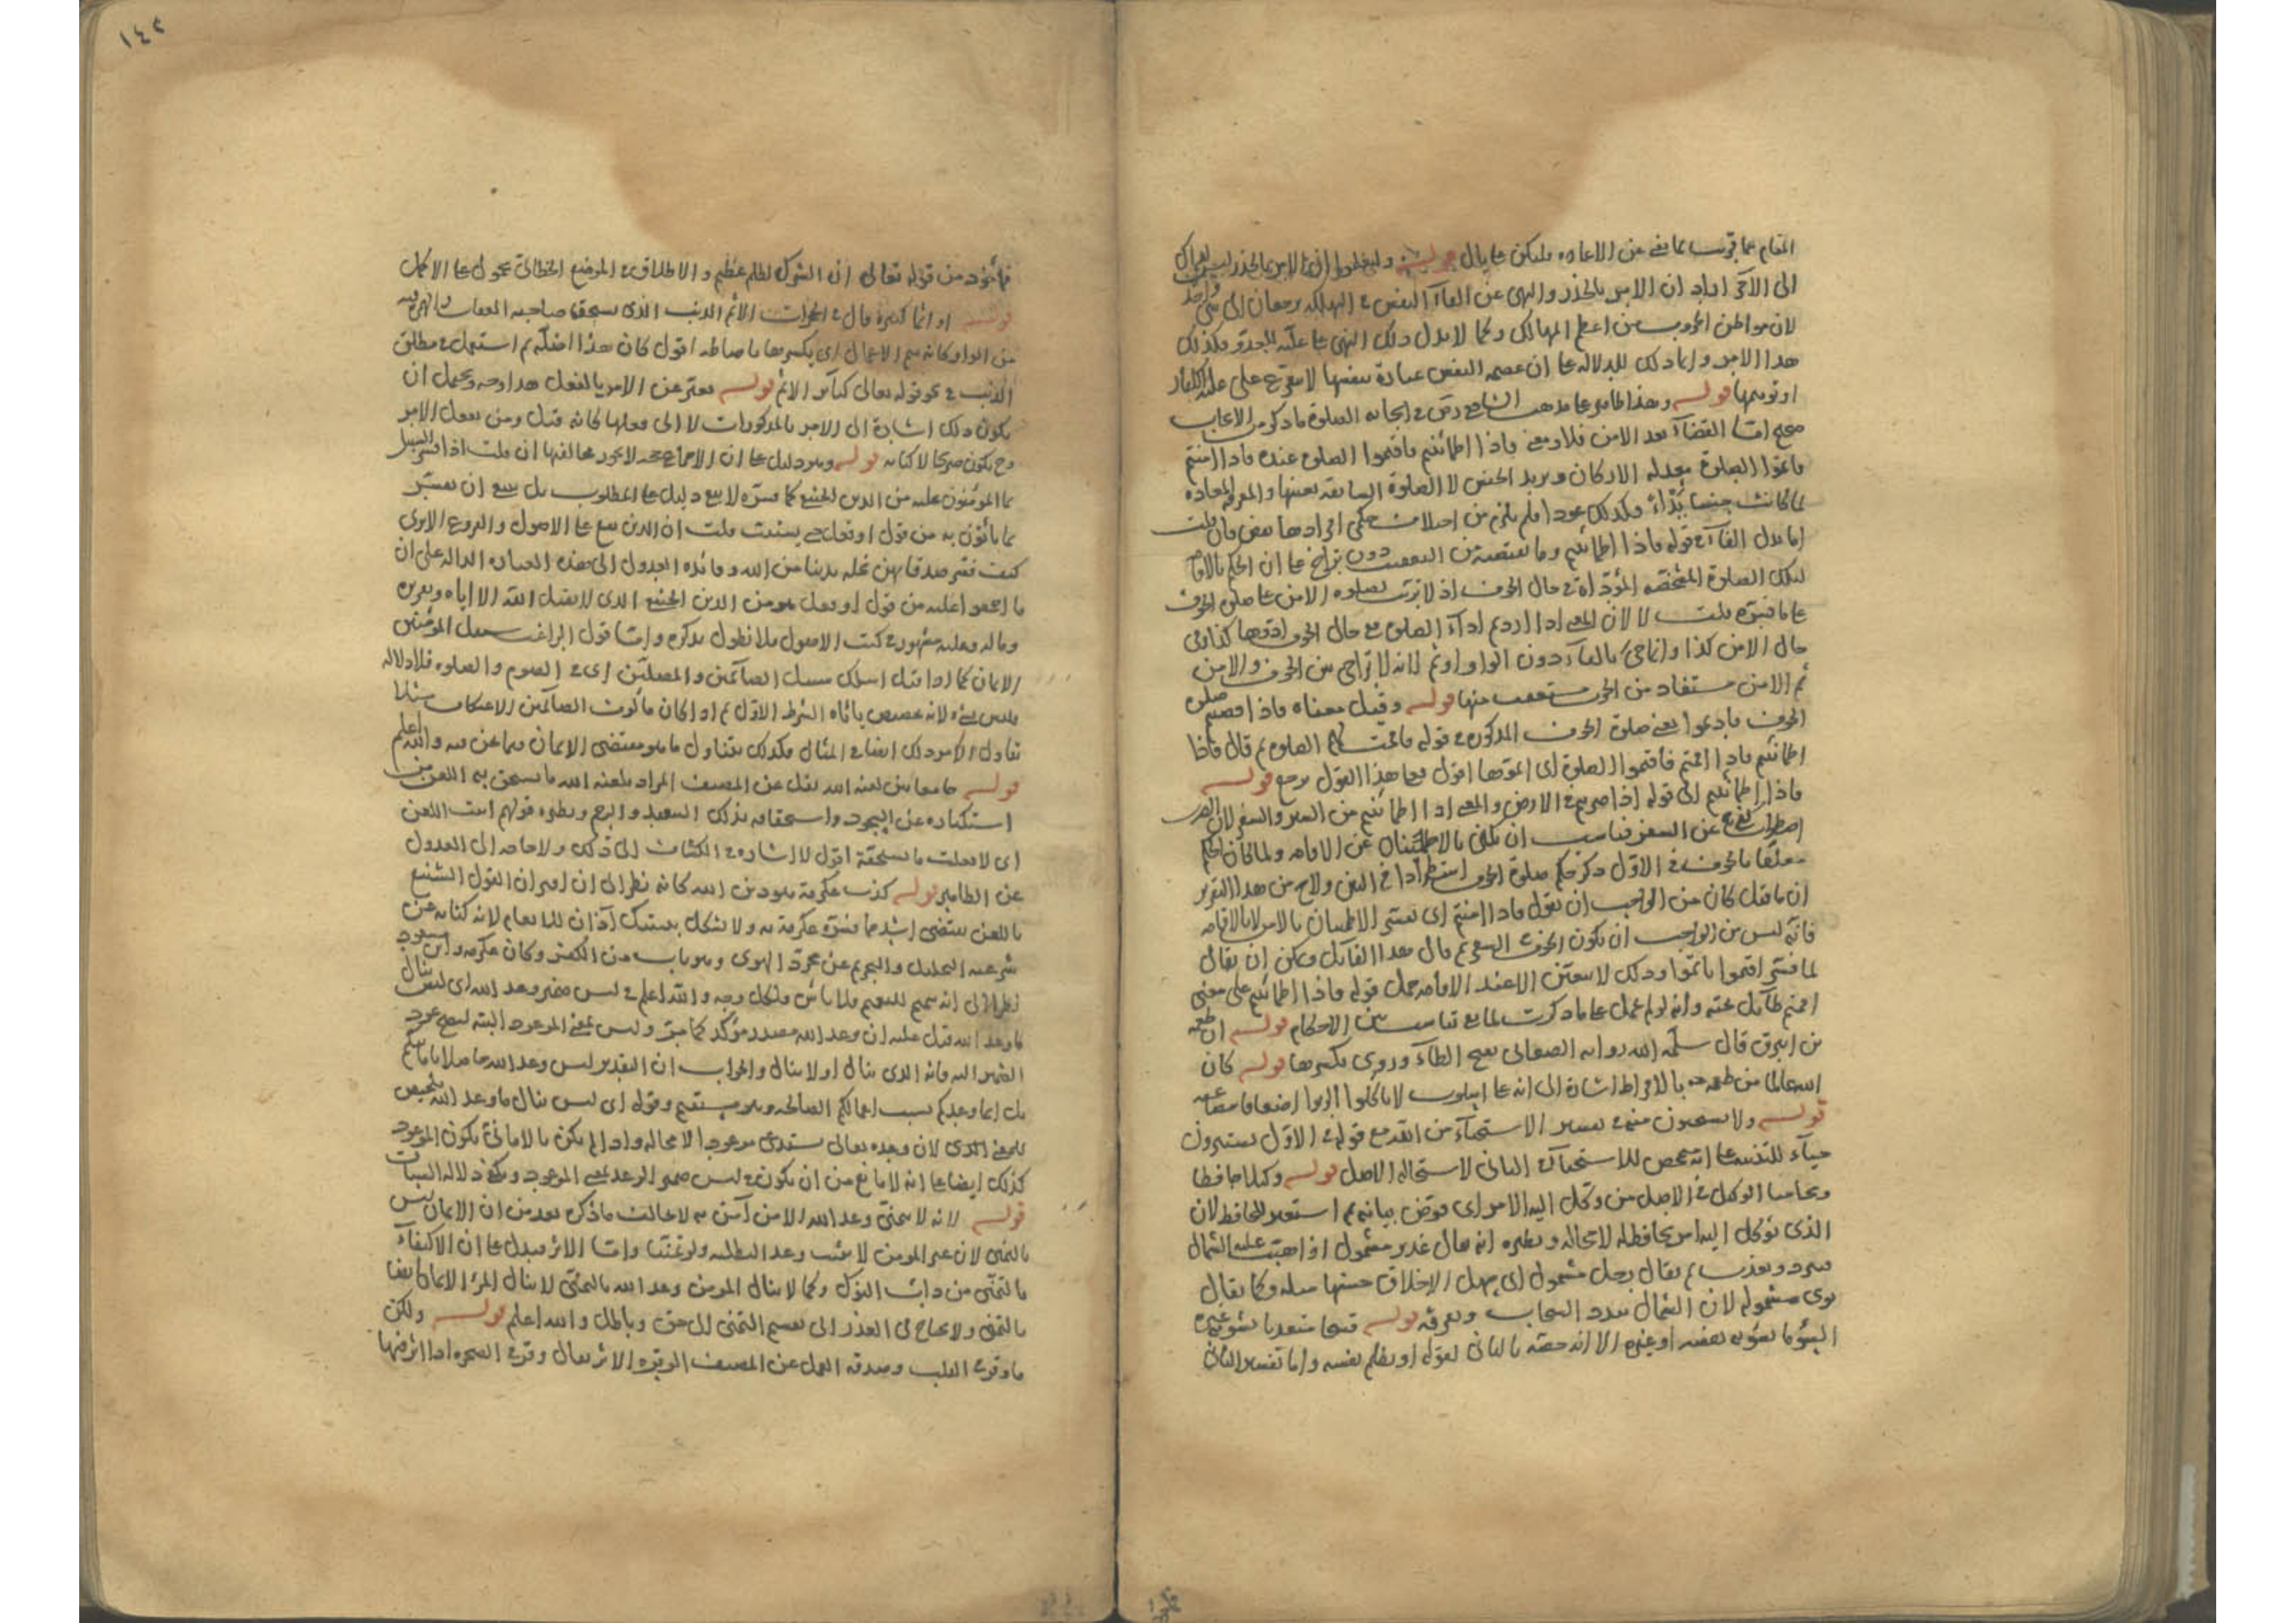 المقام بما قرب مما يغني عن الاعاده وليكن على بال قوله
الى الآخر اراد ان الامر بالحذر والنهي عن القاء النفس في التهلكه يرجعان الى شيء واحد
لان مواطن الحروب من اعظم المهالك وكما لا يدل ذلك النهي على
هذا الامر وانما ذلك للدلاله على ان عصمة النفس عبادة بنفسها
قوله وهذا ظاهر على مذهب الشافعي رض في ايجابه الصلوة
اما القضاء بعد الامن فلا ومعنى فاذا اطمأننتم فاقيموا الصلوة عنده فاذا امنتم
فاتموا الصلوة بعدله الاركان ويريد الجنس لا الصلوة السابقه بعينها والمعرفه المعاده
لما كانت جنسا بدأ فكذلك عودا فلم يلزم من اختلاف حكمي افرادها نقض فان قلت
اما يدل الفاء في قوله فاذا اطمأننتم وما يقتضيه من التعقيب دون تراخ على ان الحكم بالاقامة
لتلك الصلوة المشخصه المؤداة في حال الخوف اذ لا ترتب لصلوه الامن على صلوة الخوف
على ما فسره قلت لا لان المعنى اذا اردتم اداء الصلوة في حال الخوف ادوها كذا وفي
حال الامن كذا وانما جيء بالفاء دون الواو او ثم لانه لا تراخي بين الخوف والامن
ثم الامن مستفاد من الخوف مستعقب منها قوله وقيل معناه فاذا قضيتم صلوة
الخوف فاديموا يعني صلوة الخوف المذكوره في قوله فاقمت لهم الصلوة ثم قال فاذا
اطمأننتم فاذا اقمتم فاقيموا الصلوة اى اتموها اقول فعلى هذا القول يرجع قوله
فاذا اطمأننتم الى قوله اذا ضربتم في الارض والمعنى اذا اطمأننتم من السير والسفر لان
عن السفر فناسب ان يكنى بالاطمئنان عن الاقامه ولما كان الحكم
معلقا بالخوف في الاول ذكر حكم صلوة الخوف استطرادا في البين ولاح من هذا التقرير
ان ما قيل كان من الواجب ان يقول فاذا امنتم اى يفسر الاطمئنان بالامن لا بالاقامه
فانه ليس من الواجب ان يكون الخوف السفر ثم قال هذا القائل ويمكن ان يقال
لما فسر اقيموا باتموا وذلك لا يتعين الا عند الاقامه حمل قوله فاذا اطمأننتم على معنى
اقمتم طائل تحته وانه لو لم يحمل على ما ذكرت لما بقي تناسب بين الاحكام قوله ان طعمة
بن ابيرق قال سلمه الله روايه الصغاني بفتح الطاء وروى بكسرها قوله كان
الله عالما من طعمه بالافراط اشارة الى انه على اسلوب لا تاكلوا الربوا اضعافا مضاعفه
قوله ولا يستحيون منه تفسير الاستخفاء من الله مع قوله في الاول يستترون
حياء للتنبيه على انه تمحض للاستحياء في الثاني لاستحاله الاصل قوله وكيلا حافظا
ومحاميا الوكيل في الاصل من وكل اليه الامر اى فوض بيانه ثم استعير للحافظ لان
الذى توكل اليه امر يحافظه لا محاله ونظيره انه يقال غدير مشمول اذا هبت عليه الشمال
فبرد وعذب ثم يقال رجل مشمول اى سهل الاخلاق حسنها مثله وكما يقال
نوى مشموله لان الشمال تبدد السحاب وتفرقه قوله قبيحا متعديا يسوء به غيره
السوء ما يسوء به نفسه او غيره الا انه خصه بالثاني لقوله او يظلم نفسه واما تفسير الثاني
١٤٢
فمأخوذ من قوله تعالى ان الشرك لظلم عظيم والاطلاق في الموضع الخطابي محمول على الاكمل
قوله او اثما كبيره قال في الحواشي الاثم الذنب الذى يستحق صاحبه العقاب والهمزة فيه
من الواو كانه يثم الاعمال اى يكسرها باحباطه اقول كان هذا اصله ثم استعمل في مطلق
الذنب في نحو قوله تعالى كبائر الاثم قوله يعبر عن الامر بالفعل هذا وجه ويحمل ان
يكون ذلك اشارة الى الامر بالمذكورات لا الى فعلها كانه قيل ومن يفعل الامر
وح يكون صريحا لا كنايه قوله وهو دليل على ان الاجماع حجه لا يجوز مخالفتها ان قلت اذا فسر السبيل
بما المؤمنون عليه من الدين الحنيفي كما فسره لا يبقى دليل على المطلوب بل ينبغي ان يفسر
بما يأتون به من قول او فعل حتى يستتب قلت ان الدين يقع على الاصول والفروع الا ترى
كيف فسر صدقاتهن نحله بدينا من الله وفائده العدول الى هذه العباره الداله على ان
ما اجمعوا عليه من قول او فعل هو من الدين الحنيفي الذى لا يقبل الله الا اياه وتقريره
وما له وعليه مشهور في كتب الاصول فلا نطول بذكره واما قول الراغب سبيل المؤمنين
الايمان كما اذا قيل اسلك سبيل الصائمين والمصلين اى في الصوم والصلوه فلا دلاله
فليس بشيء لانه تخصيص بأباه الشرط الاول ثم اذا كان مألوف الصائمين الاعتكاف مثلا
تناول الامر ذلك ايضا في المثال فكذلك يتناول ما هو مقتضى الايمان فيما نحن فيه والله اعلم
قوله جامعا بين لعنه الله نقل عن المصنف المراد بلعنه الله ما يستحق به اللعن من
استكباره عن السجود واستحقاقه بذلك التبعيد والرجم ونظيره قولهم ابيت اللعن
اى لا فعلت ما يستحقه اقول لا اشاره في الكشاف الى ذلك ولا حاجه الى العدول
عن الظاهر قوله كذب عكرمة هو دين الله كانه نظر الى ان اقتران القول الشنيع
باللعن يقتضي اشد مما فسره عكرمة به ولا يشكل بتبتيك آذان الانعام لانه كنايه عن
شرعيه التحليل والتحريم عن مجرد الهوى وهو باب من الكفر وكان عكرمه وابن مسعود
نظرا الى انه تعميم للتتميم فلا باس ولكل وجه والله اعلم في ليس ضمير وعد الله اى ليس ينال
ما وعد الله قيل عليه ان وعد الله مصدر مؤكد كما مر وليس بمعنى الموعود البته ليصح عود
الضمير اليه فانه الذى ينال او لا ينال والجواب ان التقدير ليس وعد الله حاصلا بامانيكم
بل انما وعدكم بسبب اعمالكم الصالحه وهو مستقيم وقوله اى ليس ينال ما وعد الله تلخيص
للمعنى الذى لان وعده تعالى يستدعى موعودا لا محاله واذا لم يكن بالاماني يكون الموعود
كذلك ايضا على انه لا مانع من ان يكون في ليس ضمير الوعد بمعنى الموعود ويكفي دلاله السياق
قوله لانه لا يتمنى وعد الله الا من آمن به لا يخالف ما ذكره بعد من ان الايمان ليس
بالتمني لان غير المؤمن لا يثبت وعدا لتطلبه ولو تمنيا واما الاثر فيدل على ان الاكتفاء
بالتمني من دأب النوكى وكما لا ينال المؤمن وعد الله بالتمني لا ينال المرء الايمان ايضا
بالتمني ولا يحتاج في العذر الى تقسيم التمني الى حق وباطل والله اعلم قوله ولكن
ما وقر في القلب وصدقه العمل عن المصنف الوقره الاثر يقال وقر في الصخره اذا اثر فيها